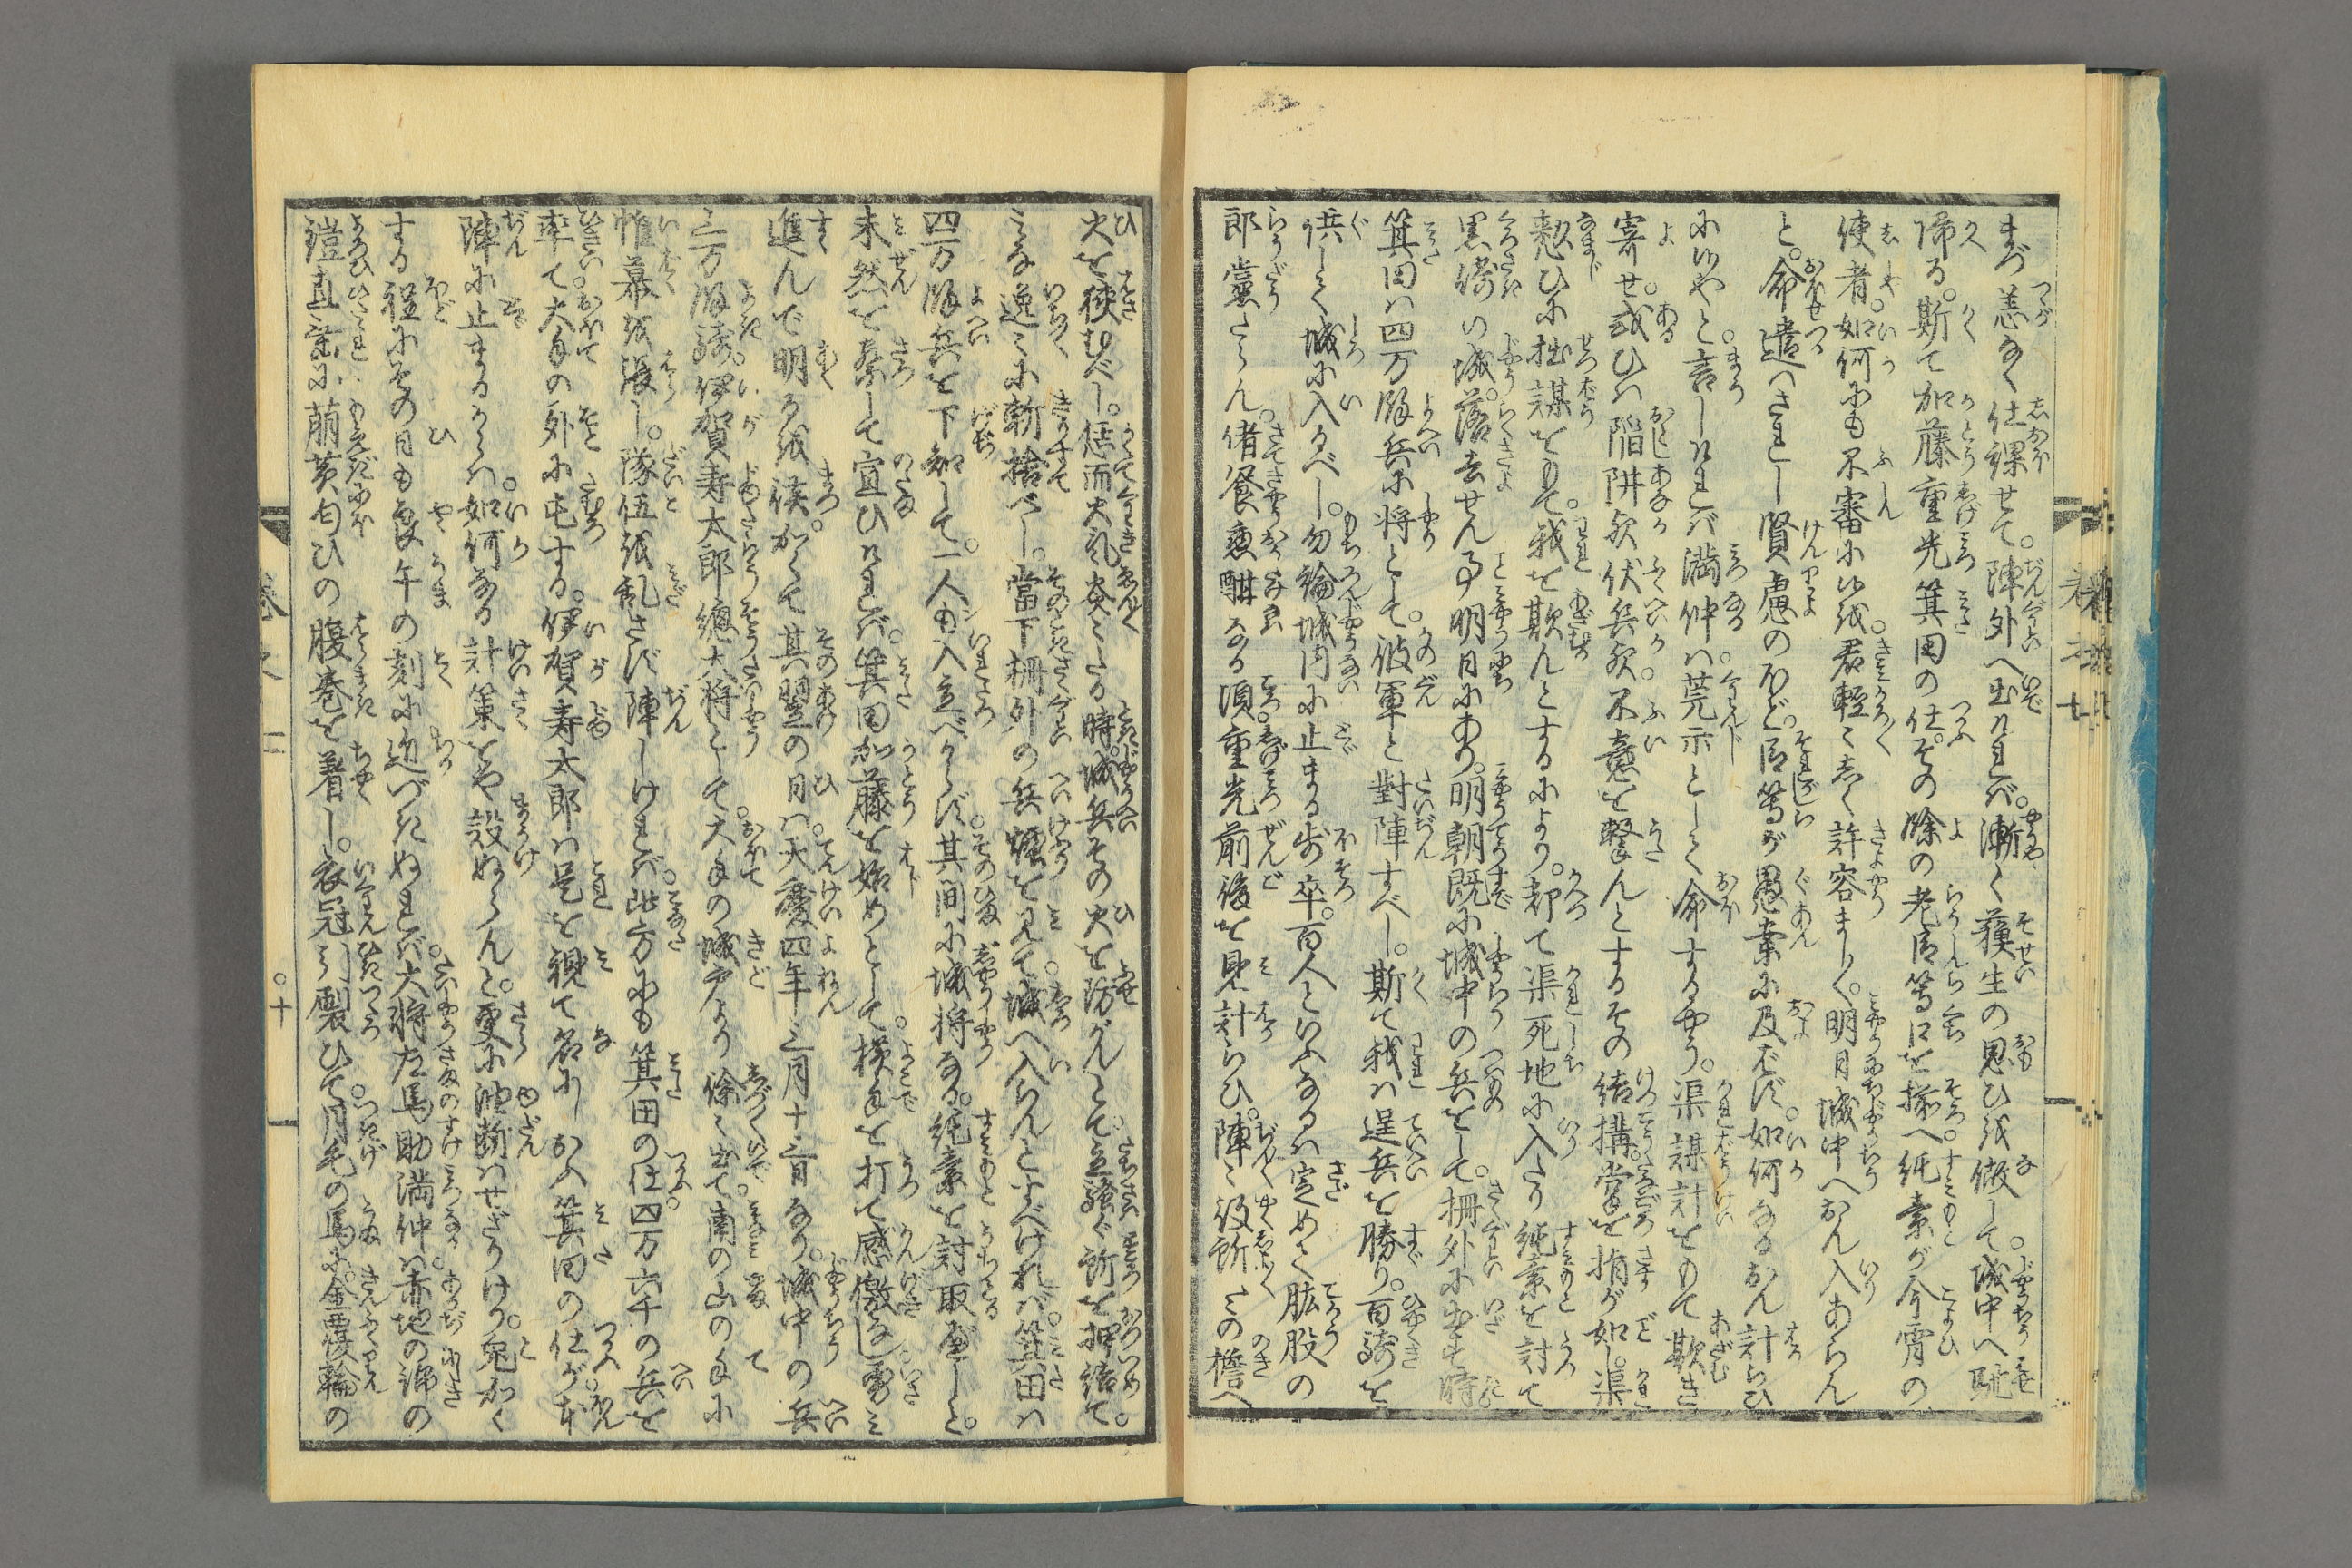 まづ恙なく仕課せて。陣外へ出ければ。漸く蘓生の思ひを做して。城中へ馳
帰る。斯て加藤重光箕田の仕。その餘の老臣等口を揃へ純素が今宵の
使者。如何にも不審に候を。君軽々しく許容ましく。明日城中へおん入あらん
と。命遣はされし賢慮のほど。臣等が愚案に及ばず。如何なるおん計らひ
に候やと。言しければ満仲は。莞尓として命するやう。渠謀計をもて欺き
寄せ。或ひは陥阱歟伏兵歟。不意を撃んとするその結構。掌を指が如し。渠
憖ひに拙謀をもて。我を欺んとするにより。却て渠死地に入たり純素を討て
黒崎の城。落去せん事明日にあり。明朝既に城中の兵をして。柵外に出す時
箕田は四万餘兵に将として。彼軍と對陣すべし。斯て我は逞兵を勝り。百騎を
供して城に入るべし。勿論城内に止まる歩卒。百人といふなるは定めて肱股の
郎黨たらん。偖餐應酣なる頃重光前後を見計らひ。陣々役所々の檐へ
火を狭むべし。恁而大乱炎々たる時。城兵その火を防がんとて。立騒ぐ所を押結て。
みな逸々に斬捨べし。當下柵外の兵。煙を見て。城へ入らんとすべければ。箕田は
四万餘兵を下知して。一人も入立べからず。其間に城将なる。純素を討取べしと。
未然を察して宣ひければ。箕田加藤を始めとして。横手を打て感激なし。勇み
進んで明るを俟。かくて其翌の日は。天慶四年三月十三日なり。城中の兵
三万餘騎。伊賀寿太郎總大将として。大手の城戸より徐々出て。南の山の手に
惟幕を張し。隊伍を乱さず陣しければ。此方にも箕田の仕。四万六千の兵を
率て大手の外に屯する。伊賀寿太郎は是を視て名にしおふ箕田の仕が本
陣に止まるからは。如何なる計策をや設ぬらんと。更に油断はせざりけり。兎かく
する程にその日も良午の刻に近づきぬれば。大将左馬助満仲は。赤地の錦の
鎧直垂に萠黄匂ひの腹巻を着し。衣冠引製ひて月毛の馬に。金覆輪の
巻之十
○十